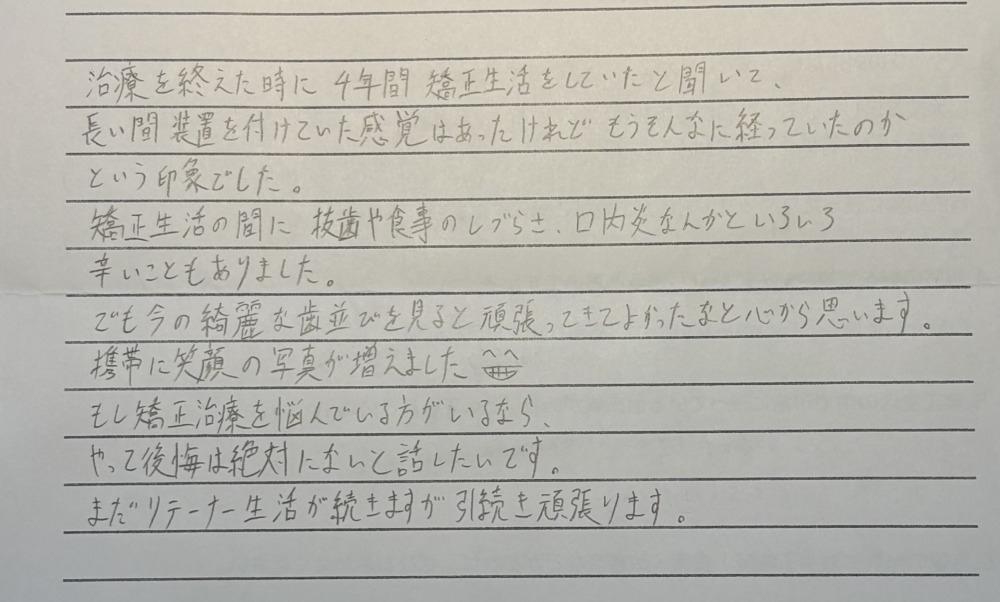 治療を終えた時に 4年間 矯正生活をしていたと聞いて、
長い間 装置を付けていた感覚はあったけれど もうそんなに経っていたのか
という印象でした。
矯正生活の間に 抜歯や食事のしづらさ、口内炎なんかといろいろ
辛いこともありました。
でも今の綺麗な歯並びを見ると頑張ってきてよかったなと心から思います。
携帯に笑顔の写真が増えました
もし矯正治療を悩んでいる方がいるなら、
やって後悔は絶対にないと話したいです。
まだリテーナー生活が続きますが引続き頑張ります。